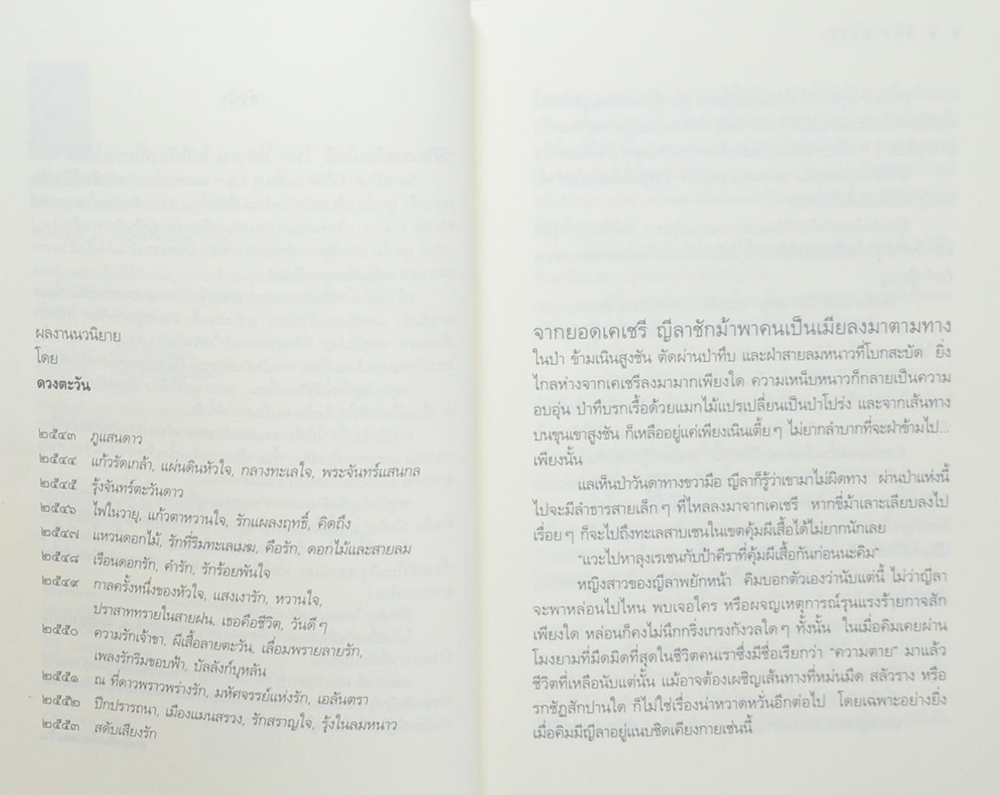 ผลงานนวนิยาย
โดย
ดวงตะวัน
๒๕๔๓ ภูแสนดาว
๒๕๔๔ แก้วรัดเกล้า, แผ่นดินหัวใจ, กลางทะเลใจ, พระจันทร์แสนกล
๒๕๔๕ รุ้งจันทร์ตะวันดาว
๒๕๔๖ ไฟในวายุ, แก้วตาหวานใจ, รักแผลงฤทธิ์, คิดถึง
๒๕๔๗ แหวนดอกไม้, รักที่ริมทะเลเมฆ, คือรัก, ดอกไม้และสายลม
๒๕๔๘ เรือนดอกรัก, คำรัก, รักร้อยพันใจ
๒๕๔๙ กาลครั้งหนึ่งของหัวใจ, แสงเงารัก, หวานใจ,
ปราสาททรายในสายฝน, เธอคือชีวิต, วันดีๆ
๒๕๕๐ ความรักเจ้าขา, ผีเสื้อลายตะวัน, เลื่อมพรายลายรัก,
เพลงรักริมขอบฟ้า, บัลลังก์บุหลัน
๒๕๕๑ ณ ที่ดาวพราวพร่างรัก, มหัศจรรย์แห่งรัก, เอลันตรา
๒๕๕๒ ปีกปรารถนา, เมืองแมนสรวง, รักสราญใจ, รุ้งในลมหนาว
๒๕๕๓ สดับเสียงรัก
จากยอดเคเชรี ญีลาชักม้าพาคนเป็นเมียลงมาตามทาง
ในป่า ข้ามเนินสูงชัน ตัดผ่านป่าทึบ และฝ่าสายลมหนาวที่โบกสะบัด ยิ่ง
ไกลห่างจากเคเชรีลงมามากเพียงใด ความเหน็บหนาวก็กลายเป็นความ
อบอุ่น ป่าทึบรกเรื้อด้วยแมกไม้แปรเปลี่ยนเป็นป่าโปร่ง และจากเส้นทาง
บนขุนเขาสูงชัน ก็เหลืออยู่แค่เพียงเนินเตี้ยๆ ไม่ยากลำบากที่จะฝ่าข้ามไป...
เพียงนั้น
แลเห็นป่าวันดาทางขวามือ ญีลาก็รู้ว่าเขามาไม่ผิดทาง ผ่านป่าแห่งนี้
ไปจะมีลำธารสายเล็กๆ ที่ไหลลงมาจากเคเชรี หากขี่ม้าเลาะเลียบลงไป
เรื่อยๆ ก็จะไปถึงทะเลสาบเชนในเขตคุ้มผีเสื้อได้ไม่ยากนักเลย
“แวะไปหาลุงเรเชนกับป้าคีราที่คุ้มผีเสื้อกันก่อนนะคิม”
หญิงสาวของญีลาพยักหน้า คิมบอกตัวเองว่านับแต่นี้ ไม่ว่าญีลา
จะพาหล่อนไปไหน พบเจอใคร หรือผจญเหตุการณ์รุนแรงร้ายกาจสัก
เพียงใด หล่อนก็คงไม่นึกกริ่งเกรงกังวลใดๆ ทั้งนั้น ในเมื่อคิมเคยผ่าน
โมงยามที่มืดมิดที่สุดในชีวิตคนเราซึ่งมีชื่อเรียกว่า “ความตาย” มาแล้ว
ชีวิตที่เหลือนับแต่นั้น แม้อาจต้องเผชิญเส้นทางที่หม่นมืด สลัวราง หรือ
รกชัฏสักปานใด ก็ไม่ใช่เรื่องน่าหวาดหวั่นอีกต่อไป โดยเฉพาะอย่างยิ่ง
เมื่อคิมมีญีลาอยู่แนบชิดเคียงกายเช่นนี้